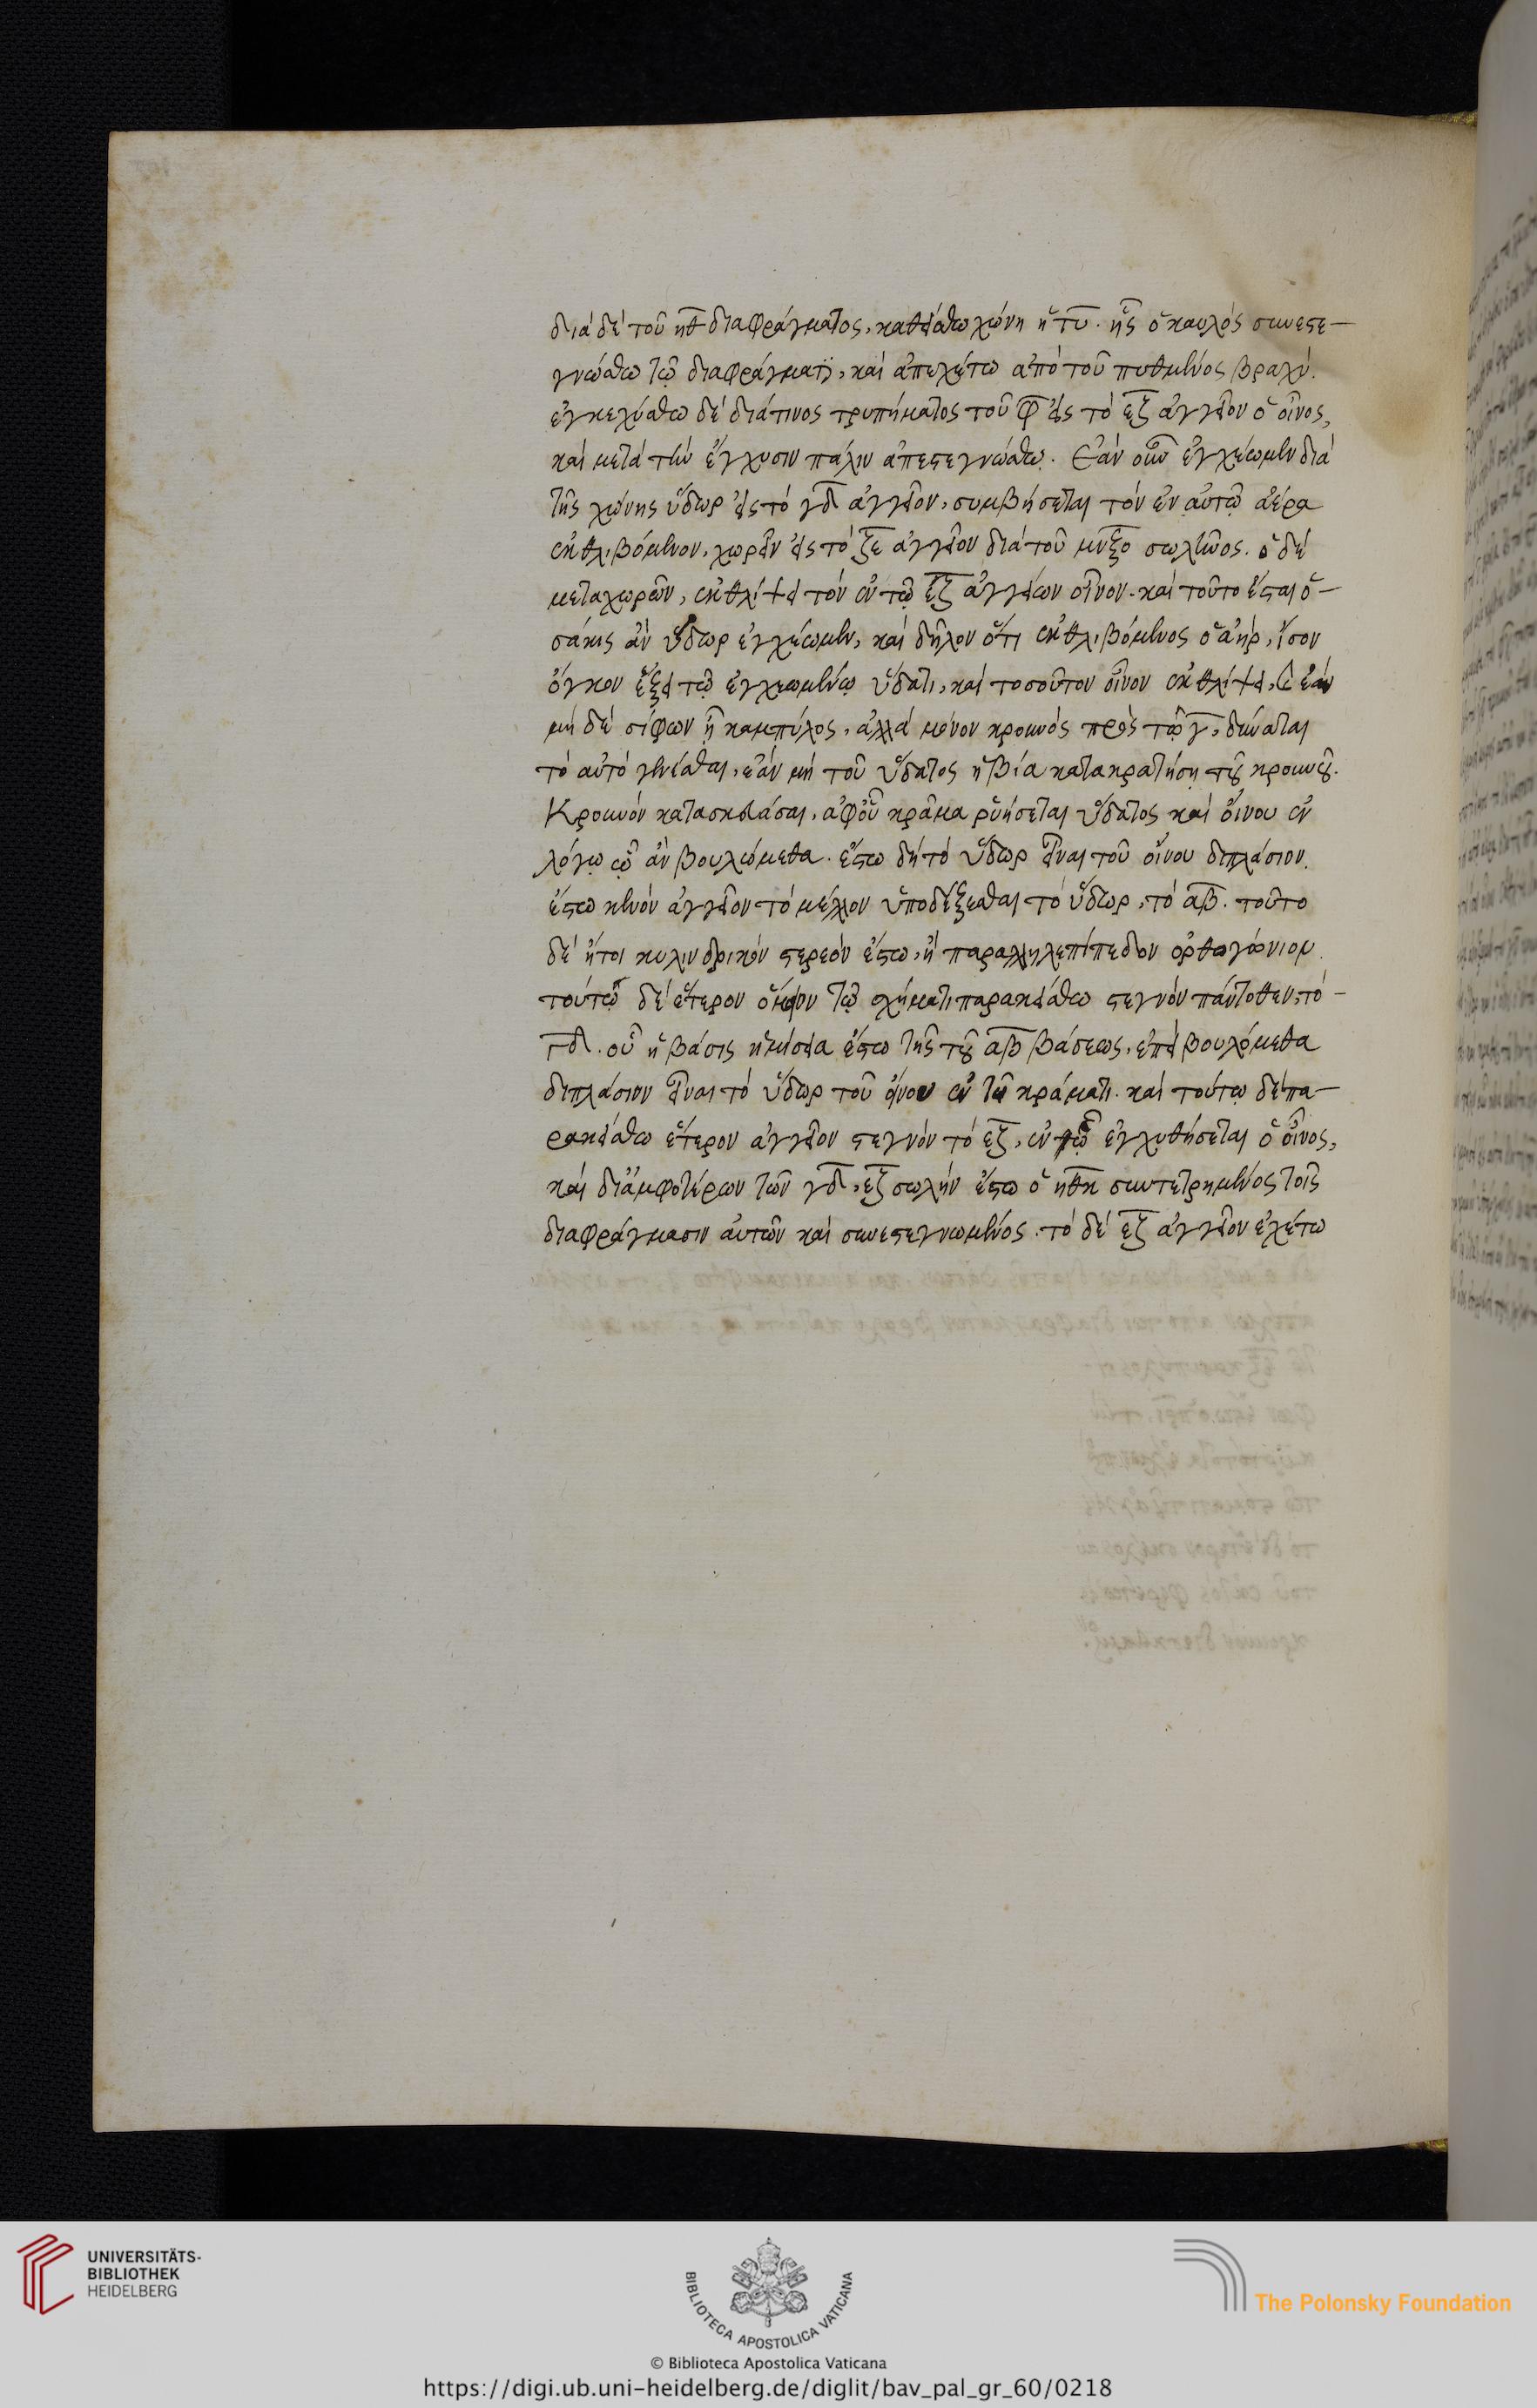 διὰ δὲ τοῦ ηθ διαφράγματος, καθείσθω χώνη ἡ τυ. ἧς ὁ καυλὸς συνεστε-
γνώσθω τῷ διαφράγματι, καὶ ἀπεχέτω ἀπὸ τοῦ πυθμένος βραχύ.
ἐγκεχύσθω δὲ διά τινος τρυπήματος τοῦ φ εἰς τὸ εζ ἀγγεῖον ὁ οἶνος,
καὶ μετὰ τὴν ἔγχυσιν πάλιν ἀπεστεγνώσθω. Ἐὰν οὖν ἐγχέωμεν διὰ
τῆς χώνης ὕδωρ εἰς τὸ γδ ἀγγεῖον, συμβήσεται τὸν ἐν αὐτῷ ἀέρα
ἐκθλιβόμενον, χωρεῖν εἰς τὸ ξε ἀγγεῖον διὰ τοῦ μνξο σωλῆνος. ὁ δὲ
μεταχωρῶν, ἐκθλίψει τὸν ἐν τῷ εζ ἀγγείων οἶνον. καὶ τοῦτο ἔσται ὁ-
σάκις ἂν ὕδωρ ἐγχέωμεν, καὶ δῆλον ὅτι ἐκθλιβόμενος ὁ ἀὴρ, ἴσον
ὄγκον ἕξει τῷ ἐγχεωμένῳ ὕδατι, καὶ τοσοῦτον οἶνον ἐκθλίψει, καὶ ἐὰν
μὴ δὲ σίφων ᾖ καμπύλος, ἀλλὰ μόνον κρουνὸς πρὸς τῷ γ, δύναται
τὸ αὐτὸ γενέσθαι, ἐὰν μὴ τοῦ ὕδατος ἡ βία κατακρατήσῃ τοῦ κρουνοῦ.
Κρουνὸν κατασκευάσαι, ἀφ' οὗ κρᾶμα ῥυήσεται ὕδατος καὶ οἴνου ἐν
λόγῳ ᾧ ἂν βουλώμεθα. ἔστω δὴ τὸ ὕδωρ εἶναι τοῦ οἴνου διπλάσιον.
ἔστω κενὸν ἀγγεῖον τὸ μέλλον ὑποδέξεσθαι τὸ ὕδωρ, τὸ αβ. τοῦτο
δὲ ἤτοι κυλινδρικὸν στερεὸν ἔστω, ἢ παραλληλεπίπεδον ὀρθογώνιον.
τούτῳ δὲ ἕτερον ὅμοιον τῷ σχήματι παρακείσθω στεγνὸν πάντοθεν, τὸ-
γδ. οὗ ἡ βάσις ἡμίσεια ἔστω τῆς τοῦ αβ βάσεως, ἐπεὶ βουλόμεθα
διπλάσιον εἶναι τὸ ὕδωρ τοῦ οἴνου ἐν τῷ κράματι. καὶ τούτῳ δὲ πα-
ρακείσθω ἕτερον ἀγγεῖον στεγνὸν τὸ εζ, ἐν ᾧ ἐγχυθήσεται ὁ οἶνος,
καὶ δι' ἀμφοτέρων τῶν γδ, εζ σωλὴν ἔστω ὁ ηθκ συντετρημένος τοῖς
διαφράγμασιν αὐτῶν καὶ συνεστεγνωμένος. τὸ δὲ εζ ἀγγεῖον ἐχέτω
UNIVERSITÄTS-
BIBLIOTHEK
HEIDELBERG
BIBLIOTECA APOSTOLICA VATICANA
© Biblioteca Apostolica Vaticana
The Polonsky Foundation
https://digi.ub.uni-heidelberg.de/diglit/bav_pal_gr_60/0218